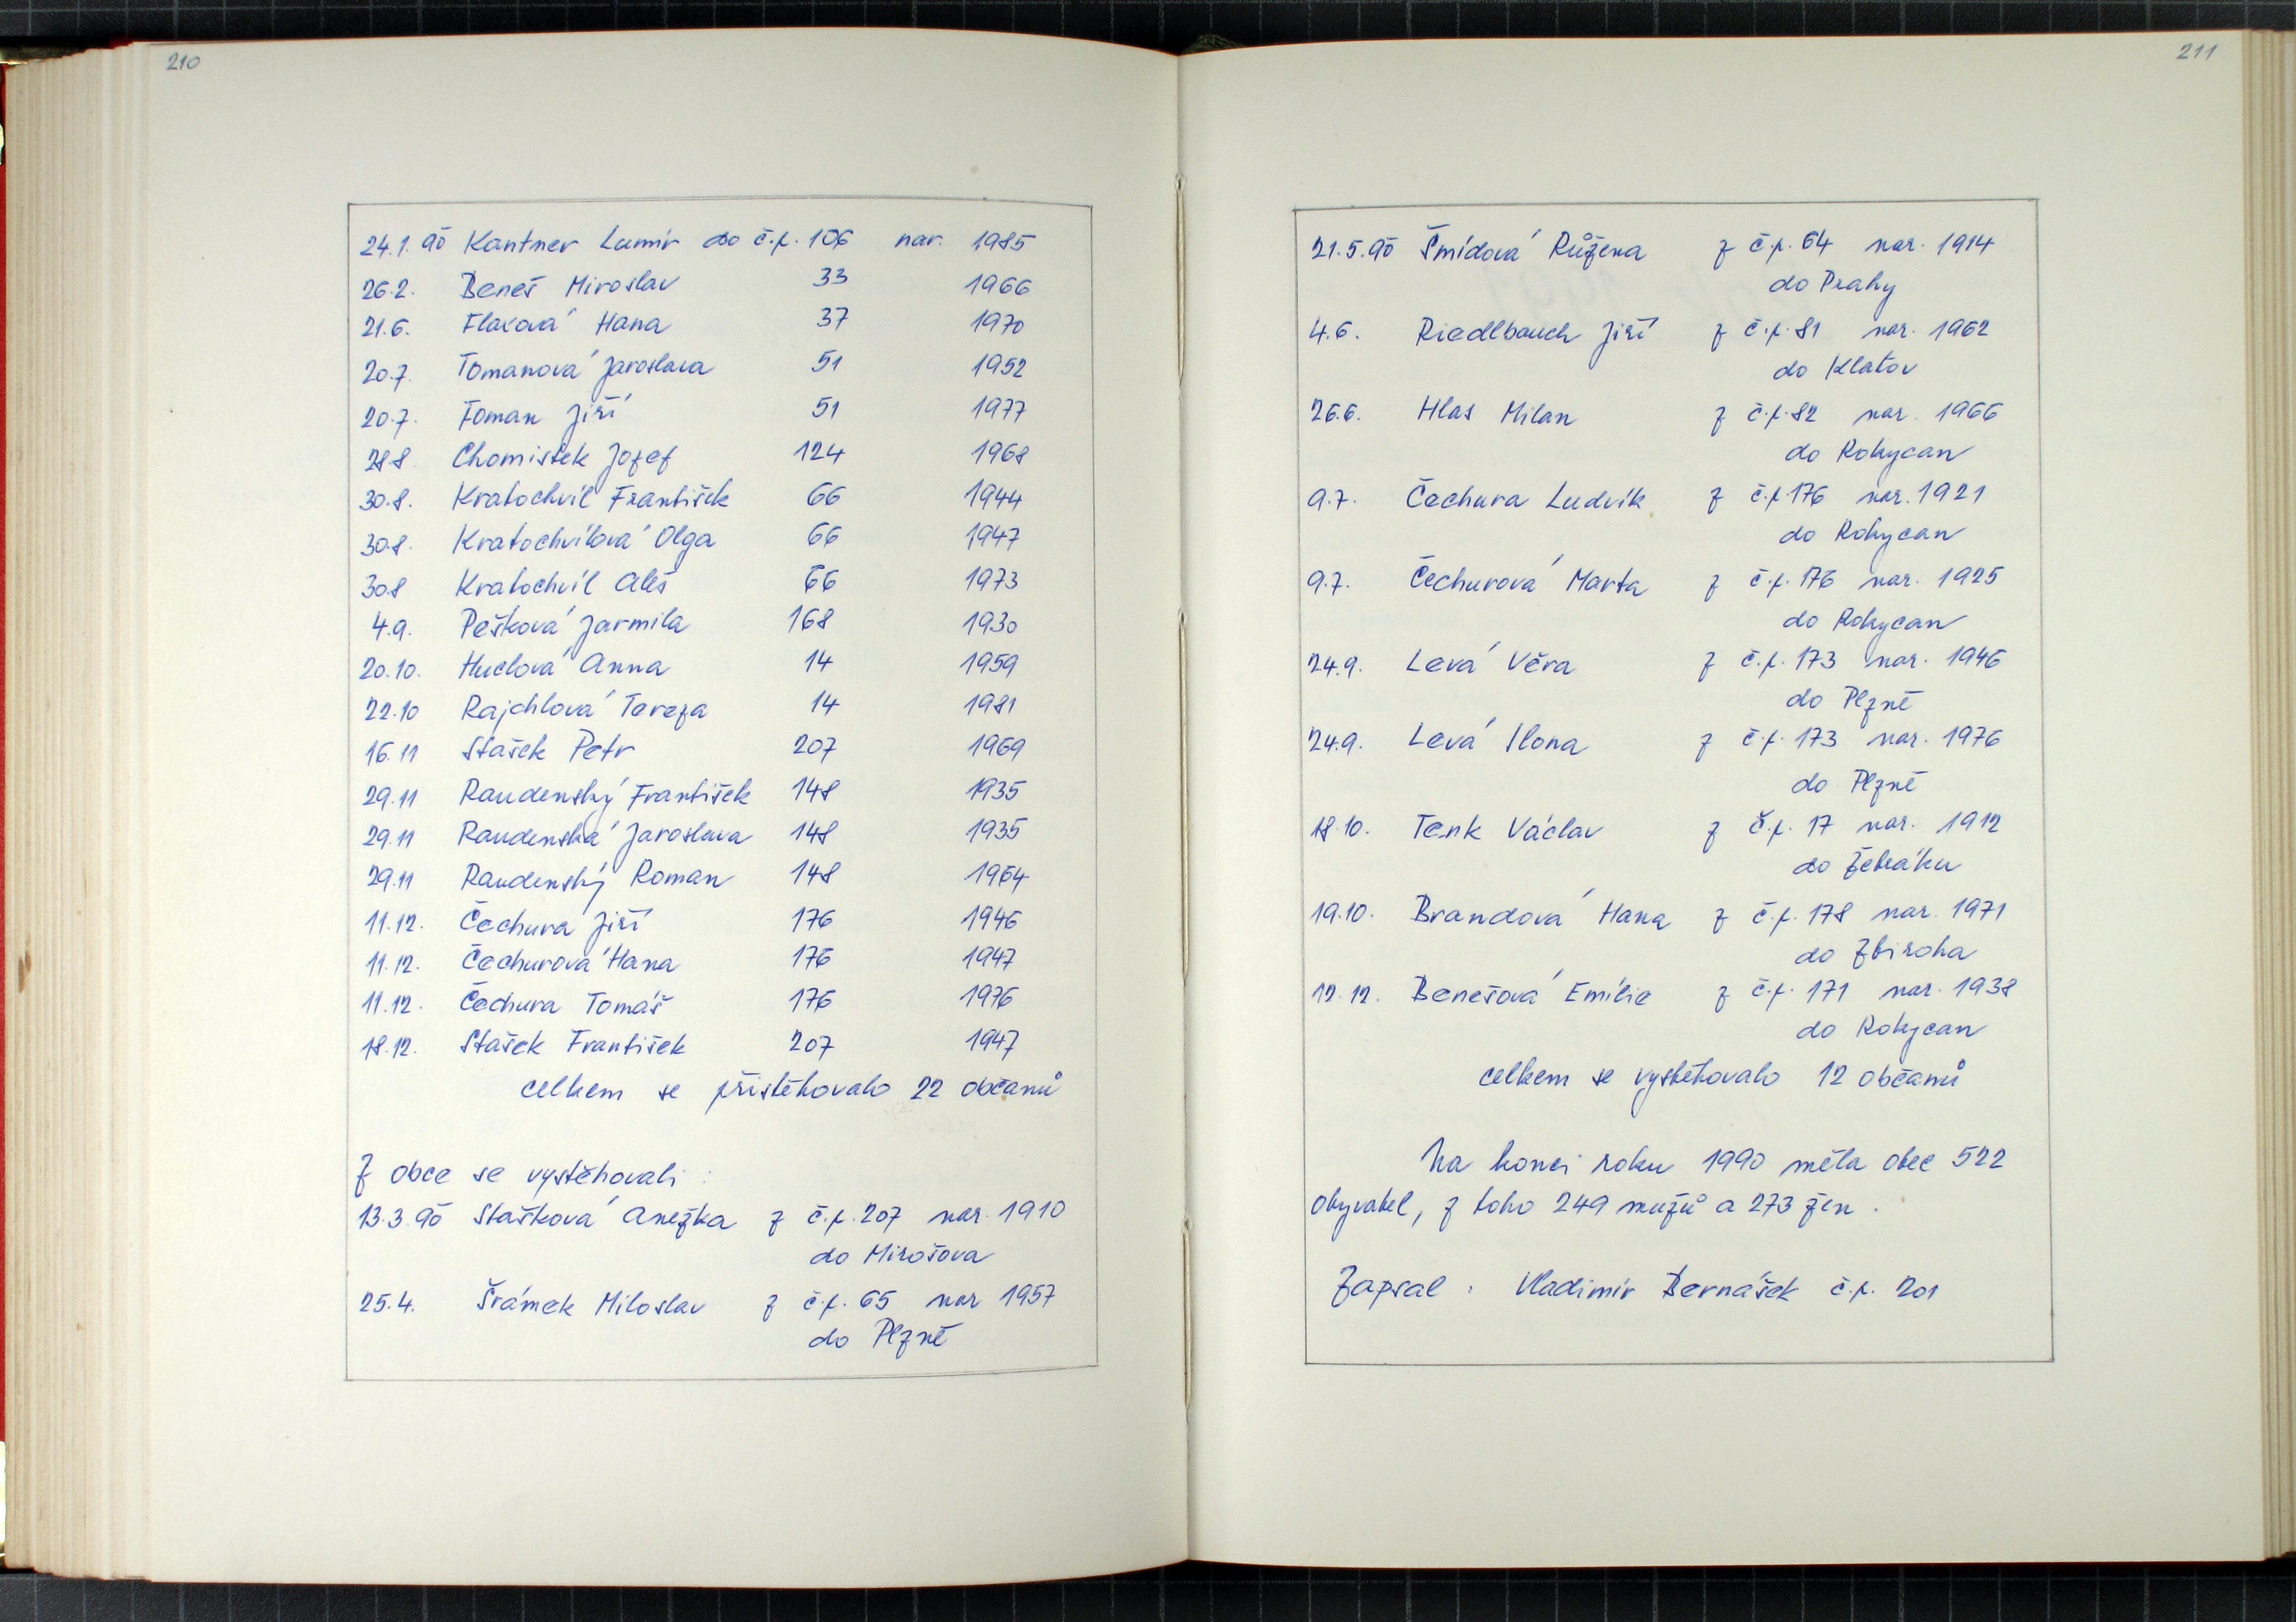 210
24.1.90 Kantner Lumír do č.p. 106 nar. 1985
26.2. Beneš Miroslav 33 1966
21.6. Flaxová Hana 37 1970
20.7. Tomanová Jaroslava 51 1952
20.7. Toman Jiří 51 1977
28.8 Chomistek Jozef 124 1968
30.8. Kratochvíl František 66 1944
30.8. Kratochvílová Olga 66 1947
30.8 Kratochvíl Aleš 66 1973
4.9. Pešková Jarmila 168 1930
20.10. Huclová Anna 14 1959
22.10 Rajchlová Tereza 14 1981
16.11 Stašek Petr 207 1969
29.11 Raudenský František 148 1935
29.11 Raudenská Jaroslava 148 1935
29.11 Raudenský Roman 148 1964
11.12. Čechura Jiří 176 1946
11.12. Čechurová Hana 176 1947
11.12. Čechura Tomáš 176 1976
18.12. Stašek František 207 1947
celkem se přistěhovalo 22 občanů
Z obce se vystěhovali :
13.3.90 Stašková Anežka z č.p. 207 nar. 1910
do Mirošova
25.4. Šrámek Miloslav z č.p. 65 nar 1957
do Plzně
211
21.5.90 Šmídová Růžena z č.p. 64 nar. 1914
do Prahy
4.6. Riedlbauch Jiří z č.p. 81 nar. 1962
do Klatov
26.6. Hlas Milan z č.p. 82 nar. 1966
do Rokycan
9.7. Čechura Ludvík z č.p. 176 nar. 1921
do Rokycan
9.7. Čechurová Marta z č.p. 176 nar. 1925
do Rokycan
24.9. Levá Věra z č.p. 173 nar. 1946
do Plzně
24.9. Levá Ilona z č.p. 173 nar. 1976
do Plzně
18.10. Tenk Václav z č.p. 17 nar. 1912
do Žebráku
19.10. Brandová Hana z č.p. 178 nar. 1971
do Zbiroha
12.12. Benešová Emílie z č.p. 171 nar. 1938
do Rokycan
celkem se vystěhovalo 12 občanů
Na konci roku 1990 měla obec 522
obyvatel, z toho 249 mužů a 273 žen .
Zapsal : Vladimír Bernášek č.p. 201